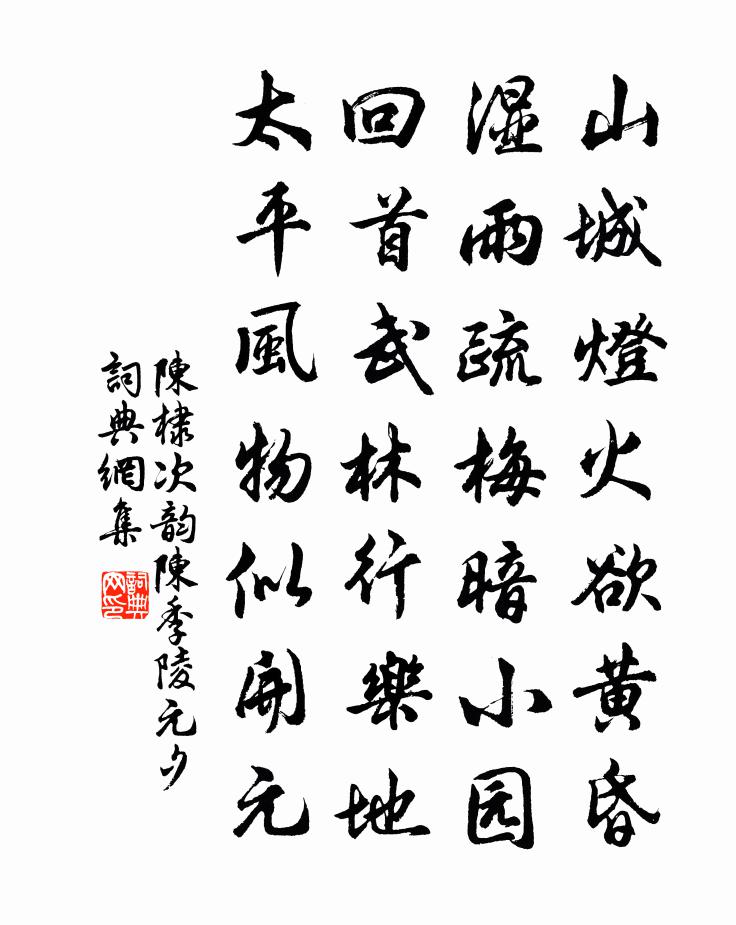 山城燈火欲黄昏
湿雨疏梅暗小园
回首武林行樂地
太平風物似開元
陳棣次韵陳季陵元夕
詞典網集
詞典网印